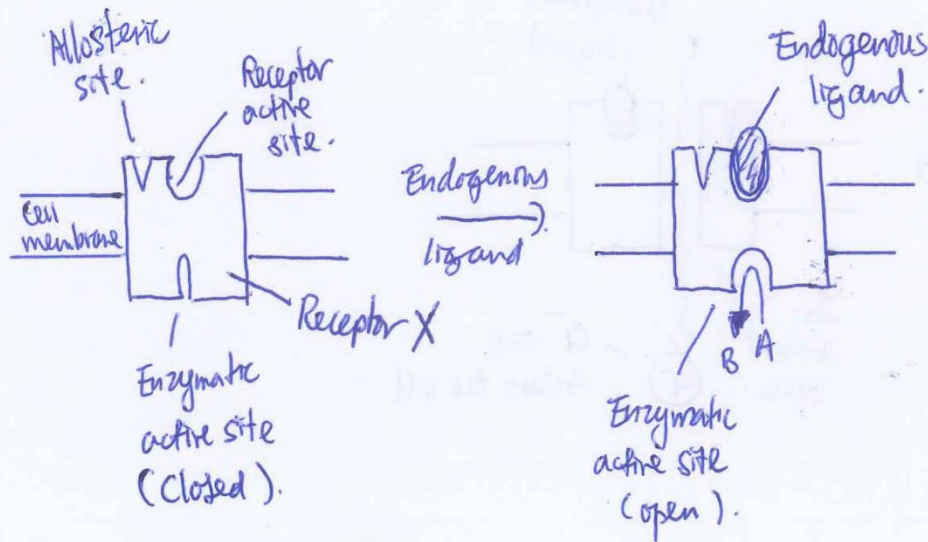 Allosteric
site.
Receptor
active
site.
Cell
membrane
Receptor X
Enzymatic
active site
(Closed).
Endogenous
ligand
Endogenous
ligand.
B A
Enzymatic
active site
(open).